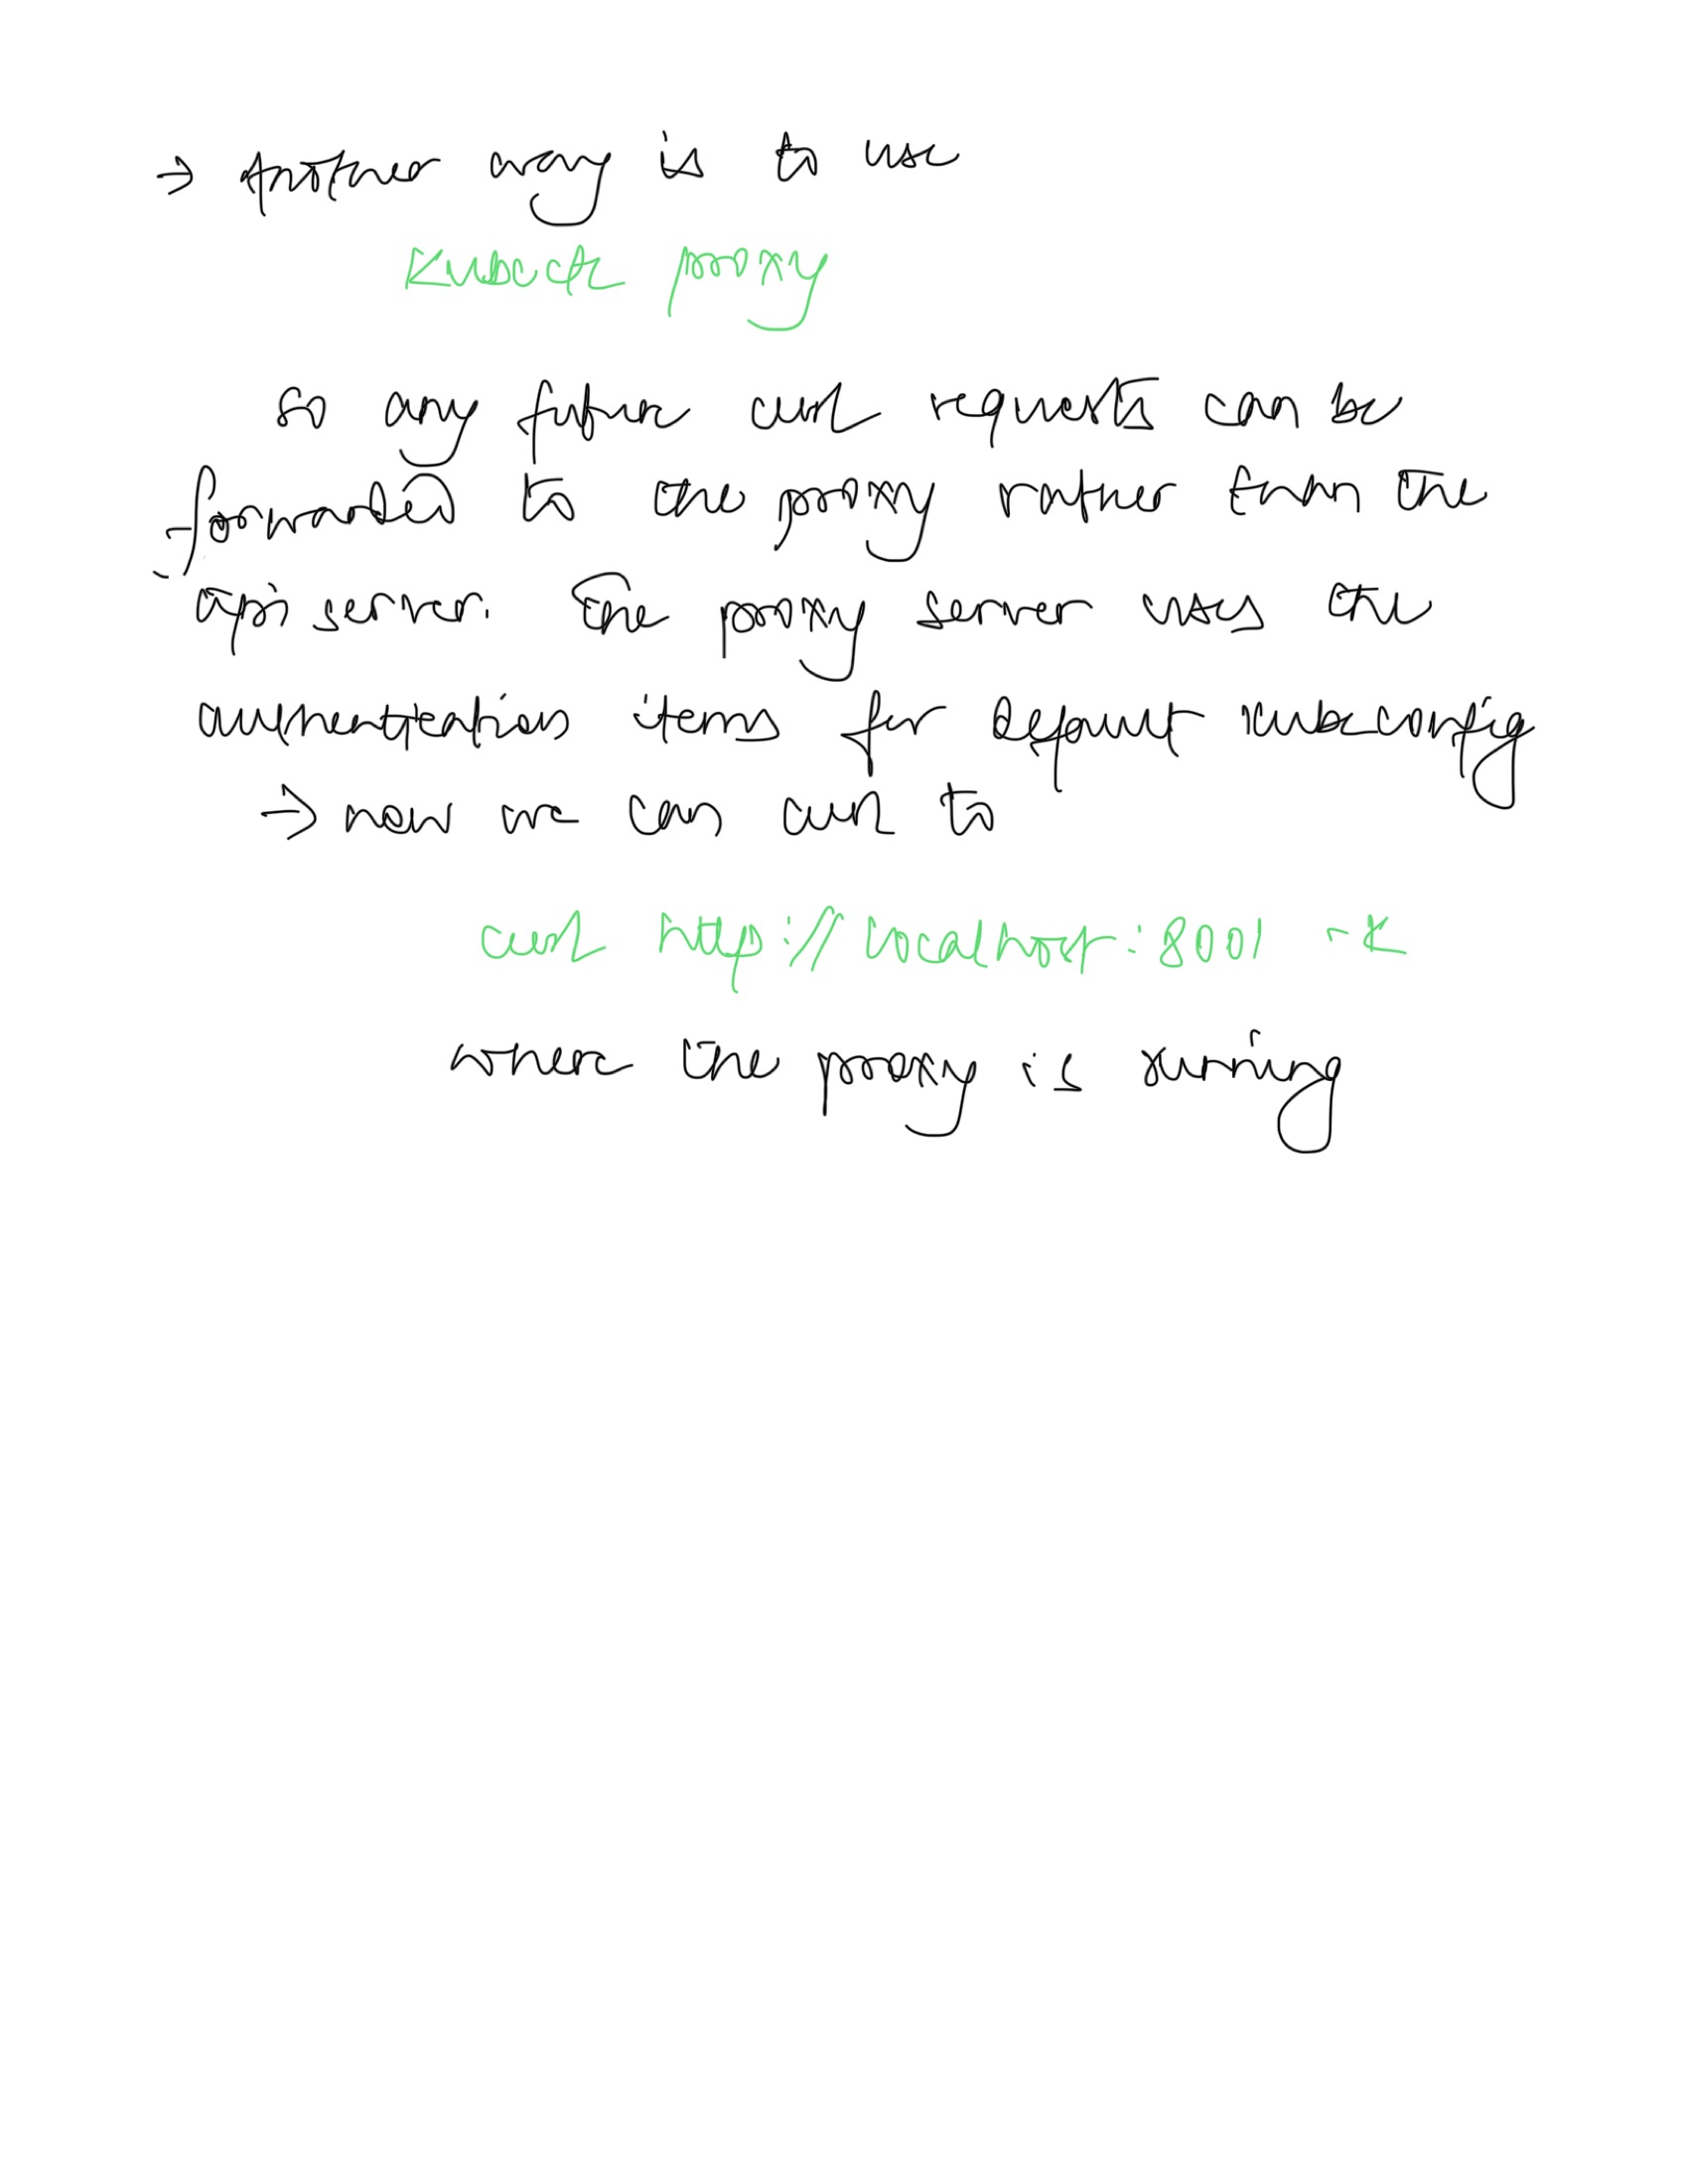 → Another way is to use
kubectl proxy
so any future curl requests can be
forwarded to the proxy rather than the
api server. The proxy server uses the
authentication items for default kubeconfig
→ now we can curl to
curl http://localhost:8001 -k
where the proxy is running